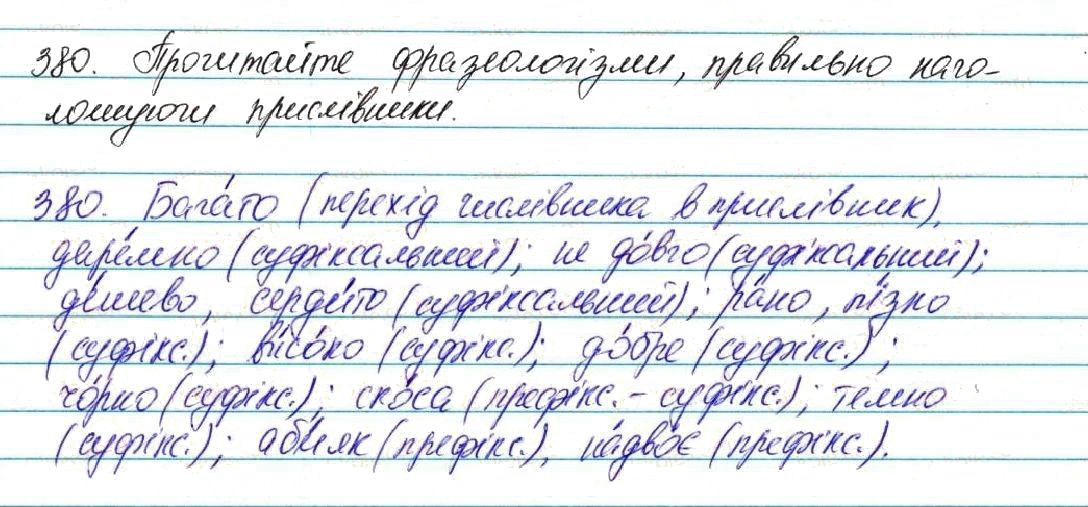 380. Прочитайте фразеологізми, правильно наго-
лошуючи прислівники.
380. Бага́то (перехід числівника в прислівник),
даре́мно (суфіксальний); не до́вго (суфіксальний);
де́шево, серди́то (суфіксальний); ра́но, пі́зно
(суфікс.); ви́со́ко (суфікс.); до́бре (суфікс.);
чо́рно (суфікс.); ско́са (префікс. - суфікс.); темно
(суфікс.); аби́як (префікс.), на́дво́є (префікс.).